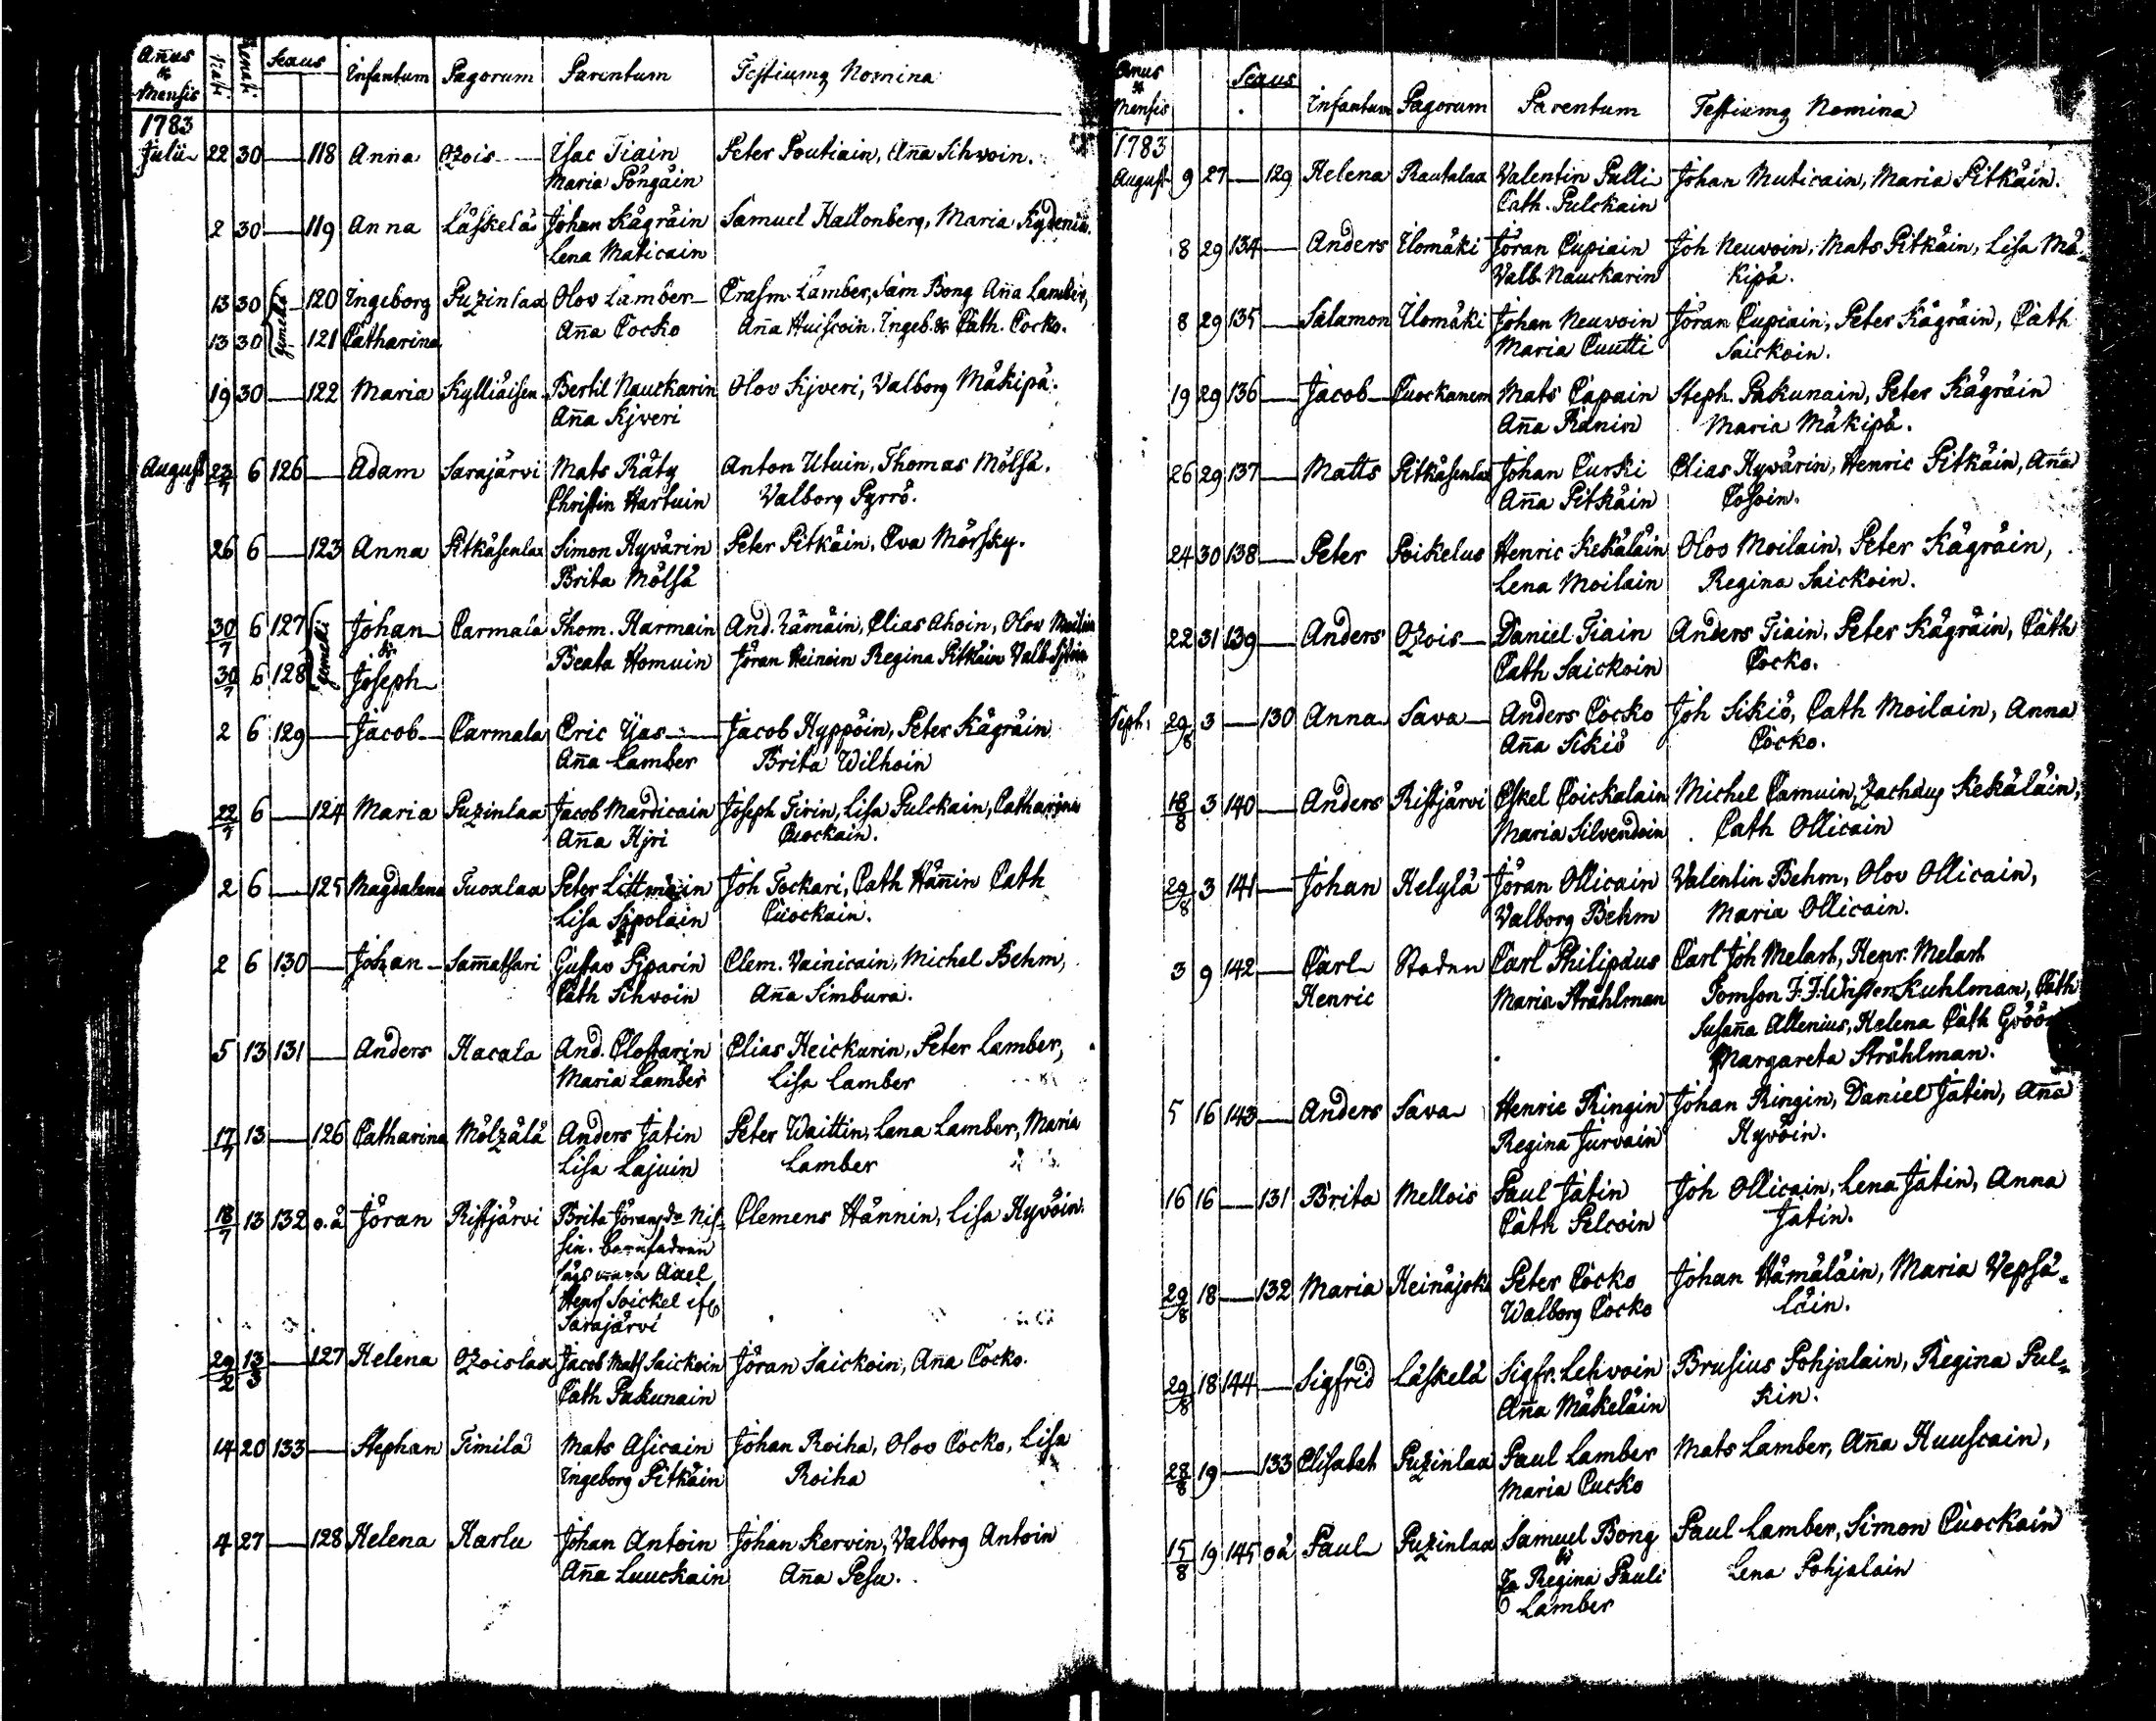 Añus & Mensis Nati Renati Sexus Infantum Pagorum Parentum Testiumq Nomina
1783
Julii 22 30 — 118 Anna Ozois Isac Tiain Peter Poutiain, Aña Sihvoin.
Maria Pöngäin
2 30 — 119 Anna Läskelä Johan Kägräin Samuel Hallonberg, Maria
Lena Maticain
13 30 — 120 Ingeborg Puzinlax Olov Lamber Erasm. Lamber, Sam Bong Aña Lamber,
13 30 gemelli — 121 Catharina Aña Cocko Aña Huiscoin. Ingeb. & Cath. Cocko.
19 30 — 122 Maria Kylliäisen Bertil Nauckarin Olov Kjveri, Valborg Mäkipä.
Aña Kjveri
August 23/7 6 126 — Adam Sarajärvi Mats Räty Anton Utuin, Thomas Mölsä.
Christin Hartuin Valborg Pyrrö.
26 6 — 123 Anna Pitkäsenlax Simon Hyvärin Peter Pitkäin, Eva Mörsky.
Brita Mölsä
30/7 6 127 gemelli Johan Carmala Thom. Harmain And. Zämäin, Elias Ahoin, Olov
&
30/7 6 128 Joseph Beata Homuin Jöran Heinoin Regina Pitkäin Valb
2 6 129 — Jacob Carmala Eric Ijas Jacob Hyppöin, Peter Kägräin
Aña Lamber Brita Wilhoin
22/7 6 — 124 Maria Puzinlax Jacob Mardicain Joseph Tirin, Lisa Pulckain, Catharina
Aña Hjri Cuockain.
2 6 — 125 Magdalena Tuoxlax Peter Littmain Joh Tockari, Cath Häñin Cath
Lisa Sipolain Cuockain.
2 6 130 — Johan Sam̃atsari Gustav Pjparin Clem. Vainicain, Michel Behm,
Cath Sihvoin Aña Simbura.
5 13 131 — Anders Hacala And. Clostarin Elias Heickurin, Peter Lamber,
Maria Lamber Lisa Lamber
17/7 13 — 126 Catharina Mölzälä Anders Jatin Peter Waittin, Lena Lamber, Maria
Lisa Lajuin Lamber
18/7 13 132 o.ä Jöran Ristjärvi Brita Jörans do Nis- Clemens Hännin, Lisa Hyvöin.
sin. barnfadren
sägs vara Axel
Henr Soickel ifr
Sarajärvi
29/2 13/3 — 127 Helena Ozoislax Jacob Mats Saickoin Jöran Saickoin, Ana Cocko.
Cath Pakunain
14 20 133 — Stephan Timilä Mats Asicain Johan Roiha, Olov Cocko, Lisa
Ingeborg Pitkäin Roiha
4 27 — 128 Helena Harlu Johan Antoin Johan Kervin, Valborg Antoin
Aña Luuckain Aña Pesu.
Añus & Mensis Sexus Infantum Pagorum Parentum Testiumq Nomina
1783
August 9 27 — 129 Helena Rautalax Valentin Pulli Johan Muticain, Maria Pitkäin.
Cath. Pulckain
8 29 134 — Anders Ilomäki Jöran Cupiain Joh Neuvoin, Mats Pitkäin, Lisa Mä-
Valb. Nauckarin kipä.
8 29 135 — Salamon Ilomäki Johan Neuvoin Jöran Cupiain, Peter Kägräin, Cath
Maria Cuutti Saickoin.
19 29 136 — Jacob Cuockanem Mats Capain Steph. Pakunain, Peter Kägräin
Aña Ränin Maria Mäkipä.
26 29 137 — Matts Pitkäsenlax Johan Curki Elias Hyvärin, Henric Pitkäin, Aña
Aña Pitkäin Cosoin.
24 30 138 — Peter Poikelus Henric Kekäläin Olov Moilain, Peter Kägräin,
Lena Moilain Regina Saickoin.
22 31 139 — Anders Ozois Daniel Tiain Anders Tiain, Peter Kägräin, Cath
Cath Saickoin Cocko.
Sept: 29/8 3 — 130 Anna Sava Anders Cocko Joh Sikiö, Cath Moilain, Anna
Aña Sikiö Cocko.
18/8 3 140 — Anders Ristjärvi Eskel Coickalain Michel Camuin, Zachäus Kekäläin,
Maria Silvendoin Cath Ollicain
29/8 3 141 — Johan Helylä Jöran Ollicain Valentin Behm, Olov Ollicain,
Valborg Behm Maria Ollicain.
3 9 142 — Carl Staden Carl Philipæus Carl Joh Melart, Henr. Melart
Henric Maria Stråhlman Tomson Kuhlman, Cath
Susaña Allenius, Helena Cath
Margareta Stråhlman.
5 16 143 — Anders Sava Henric Ringin Johan Ringin, Daniel Jatin, Aña
Regina Jurvain Hyvöin.
16 16 — 131 Brita Mellois Paul Jatin Joh Ollicain, Lena Jatin, Anna
Cath Pelcoin Jatin.
29/8 18 — 132 Maria Heinäjoki Peter Cocko Johan Hämäläin, Maria Vepsä-
Walborg Cocko läin.
29/8 18 144 — Sigfrid Läskelä Sigfr. Lehvoin Brusius Pohjalain, Regina Pul-
Aña Mäkeläin kin.
28/8 19 — 133 Elisabet Puzinlax Paul Lamber Mats Lamber, Aña Huuscain,
Maria Cucko
15/8 19 145 oä Paul Puzinlax Samuel Bong Paul Lamber, Simon Cuockain
Regina Pauli Lena Pohjalain
Lamber